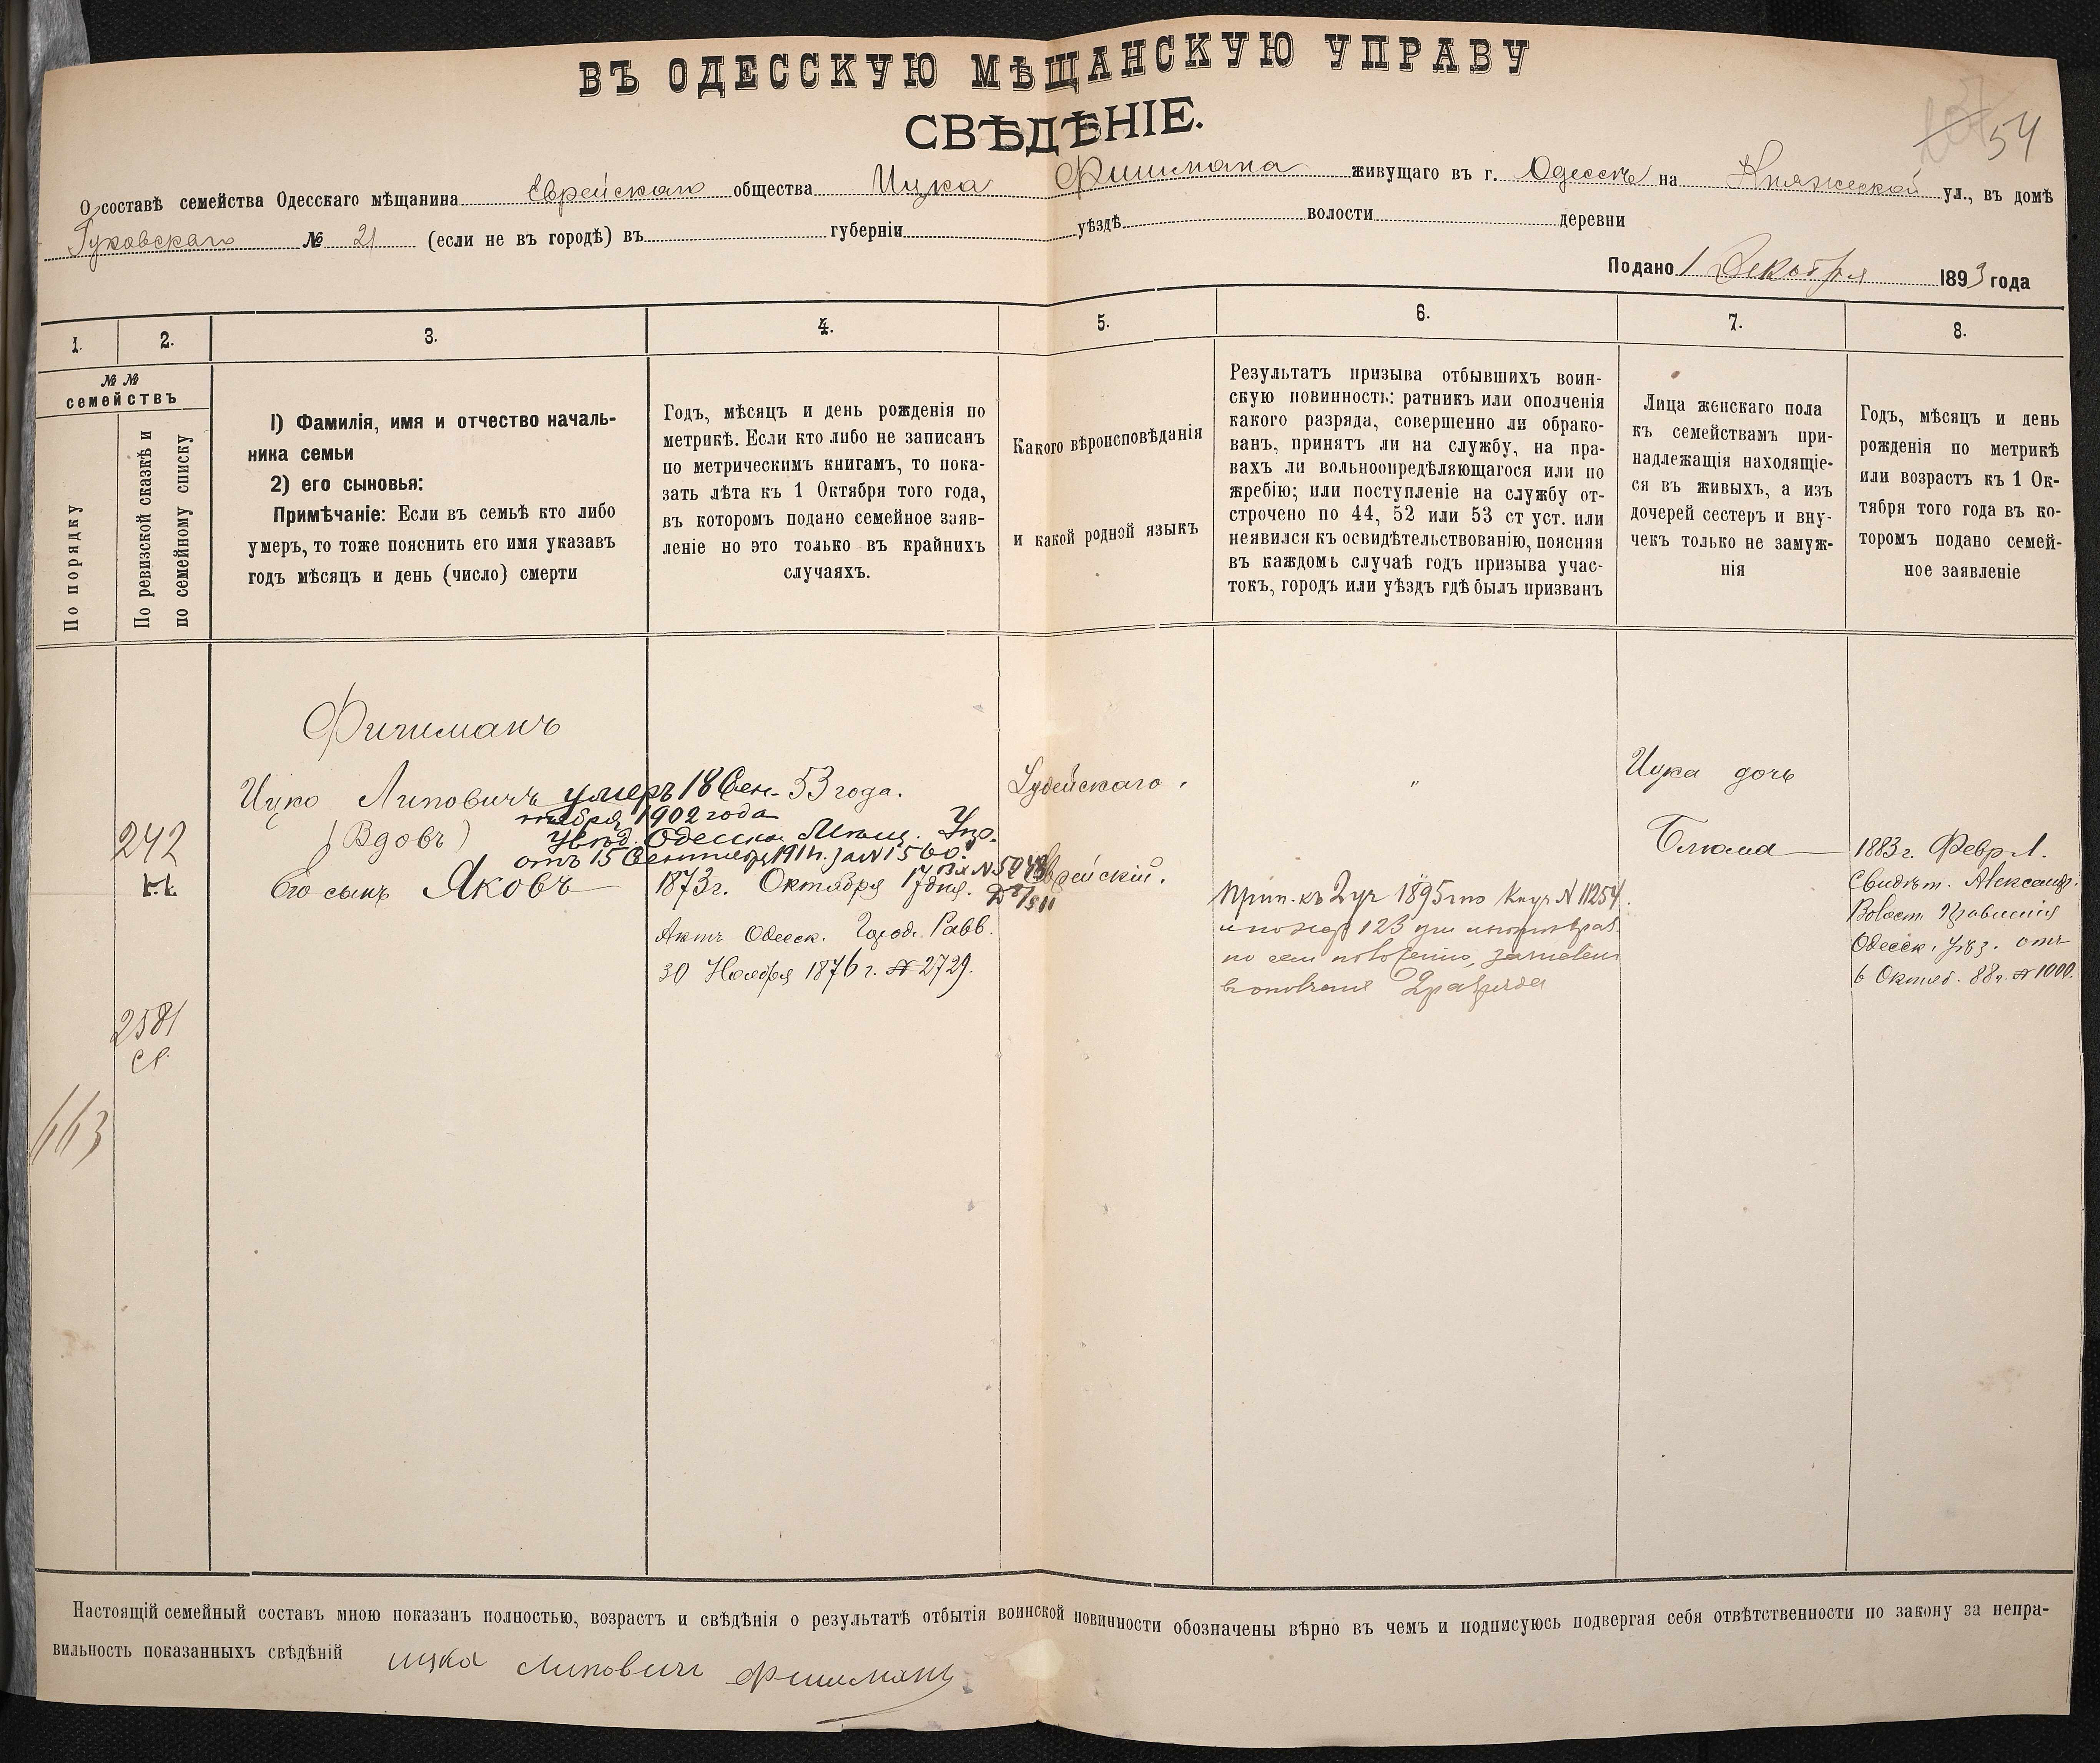 ВЪ ОДЕССКУЮ МѢЩАНСКУЮ УПРАВУ
СВѢДѢНІЕ.
54
О составѣ семейства Одесскаго мѣщанина Еврейскаго общества Ицка Фишмана живущаго въ г. Одессѣ на Княжеской ул., въ домѣ
Гуковскаго № 21 (если не въ городѣ) въ губерніи уѣздѣ волости деревни
Подано 1 Декабря 1893 года
1. 2. 3. 4. 5. 6. 7. 8.
№ №
семействъ
По порядку
По ревизской сказкѣ и
по семейному списку
1) Фамилія, имя и отчество началь-
ника семьи
2) его сыновья:
Примѣчаніе: Если въ семьѣ кто либо
умеръ, то тоже пояснить его имя указавъ
годъ мѣсяцъ и день (число) смерти
Годъ, мѣсяцъ и день рожденія по
метрикѣ. Если кто либо не записанъ
по метрическимъ книгамъ, то пока-
зать лѣта къ 1 Октября того года,
въ которомъ подано семейное заяв-
леніе но это только въ крайнихъ
случаяхъ.
Какого вѣроисповѣданія
и какой родной языкъ
Результатъ призыва отбывшихъ воин-
скую повинность: ратникъ или ополченія
какого разряда, совершенно ли обрако-
ванъ, принятъ ли на службу, на пра-
вахъ ли вольноопредѣляющагося или по
жребію; или поступленіе на службу от-
строчено по 44, 52 или 53 ст уст. или
неявился къ освидѣтельствованію, поясняя
въ каждомъ случаѣ годъ призыва учас-
токъ, городъ или уѣздъ гдѣ былъ призванъ
Лица женскаго пола
къ семействамъ при-
надлежащія находящіе-
ся въ живыхъ, а изъ
дочерей сестеръ и вну-
чекъ только не замуж-
нія
Годъ, мѣсяцъ и день
рожденія по метрикѣ
или возрастъ къ 1 Ок-
тября того года въ ко-
торомъ подано семей-
ное заявленіе
Фишманъ
Ицко Липовичъ умеръ 18 Сен- 53 года.
тября 1902 года
(Вдовъ)
Увѣд. Одесск. Мѣщ. Упр.
отъ 15 Сентября 1911 г. за № 1560.
Іудейскаго.
"
Ицка дочь
242
Его сынъ Яковъ
1873 г. Октября 17 дня.
Актъ Одесск. Город. Равв.
30 Ноября 1876 г. № 2729.
Еврейскій.
Прип. къ 2 уч 1895 г по № 11254.
123
2 разряда
Блюма
1883 г. Февр. 1.
Свидѣт. Александр.
Волост. Правленія
Одесск. уѣз. отъ
6 Октяб. 88 г. № 1000.
2581
663
Настоящій семейный составъ мною показанъ полностью, возрастъ и свѣдѣнія о результатѣ отбытія воинской повинности обозначены вѣрно въ чемъ и подписуюсь подвергая себя отвѣтственности по закону за непра-
вильность показанныхъ свѣдѣній ицка липовичъ фишманъ